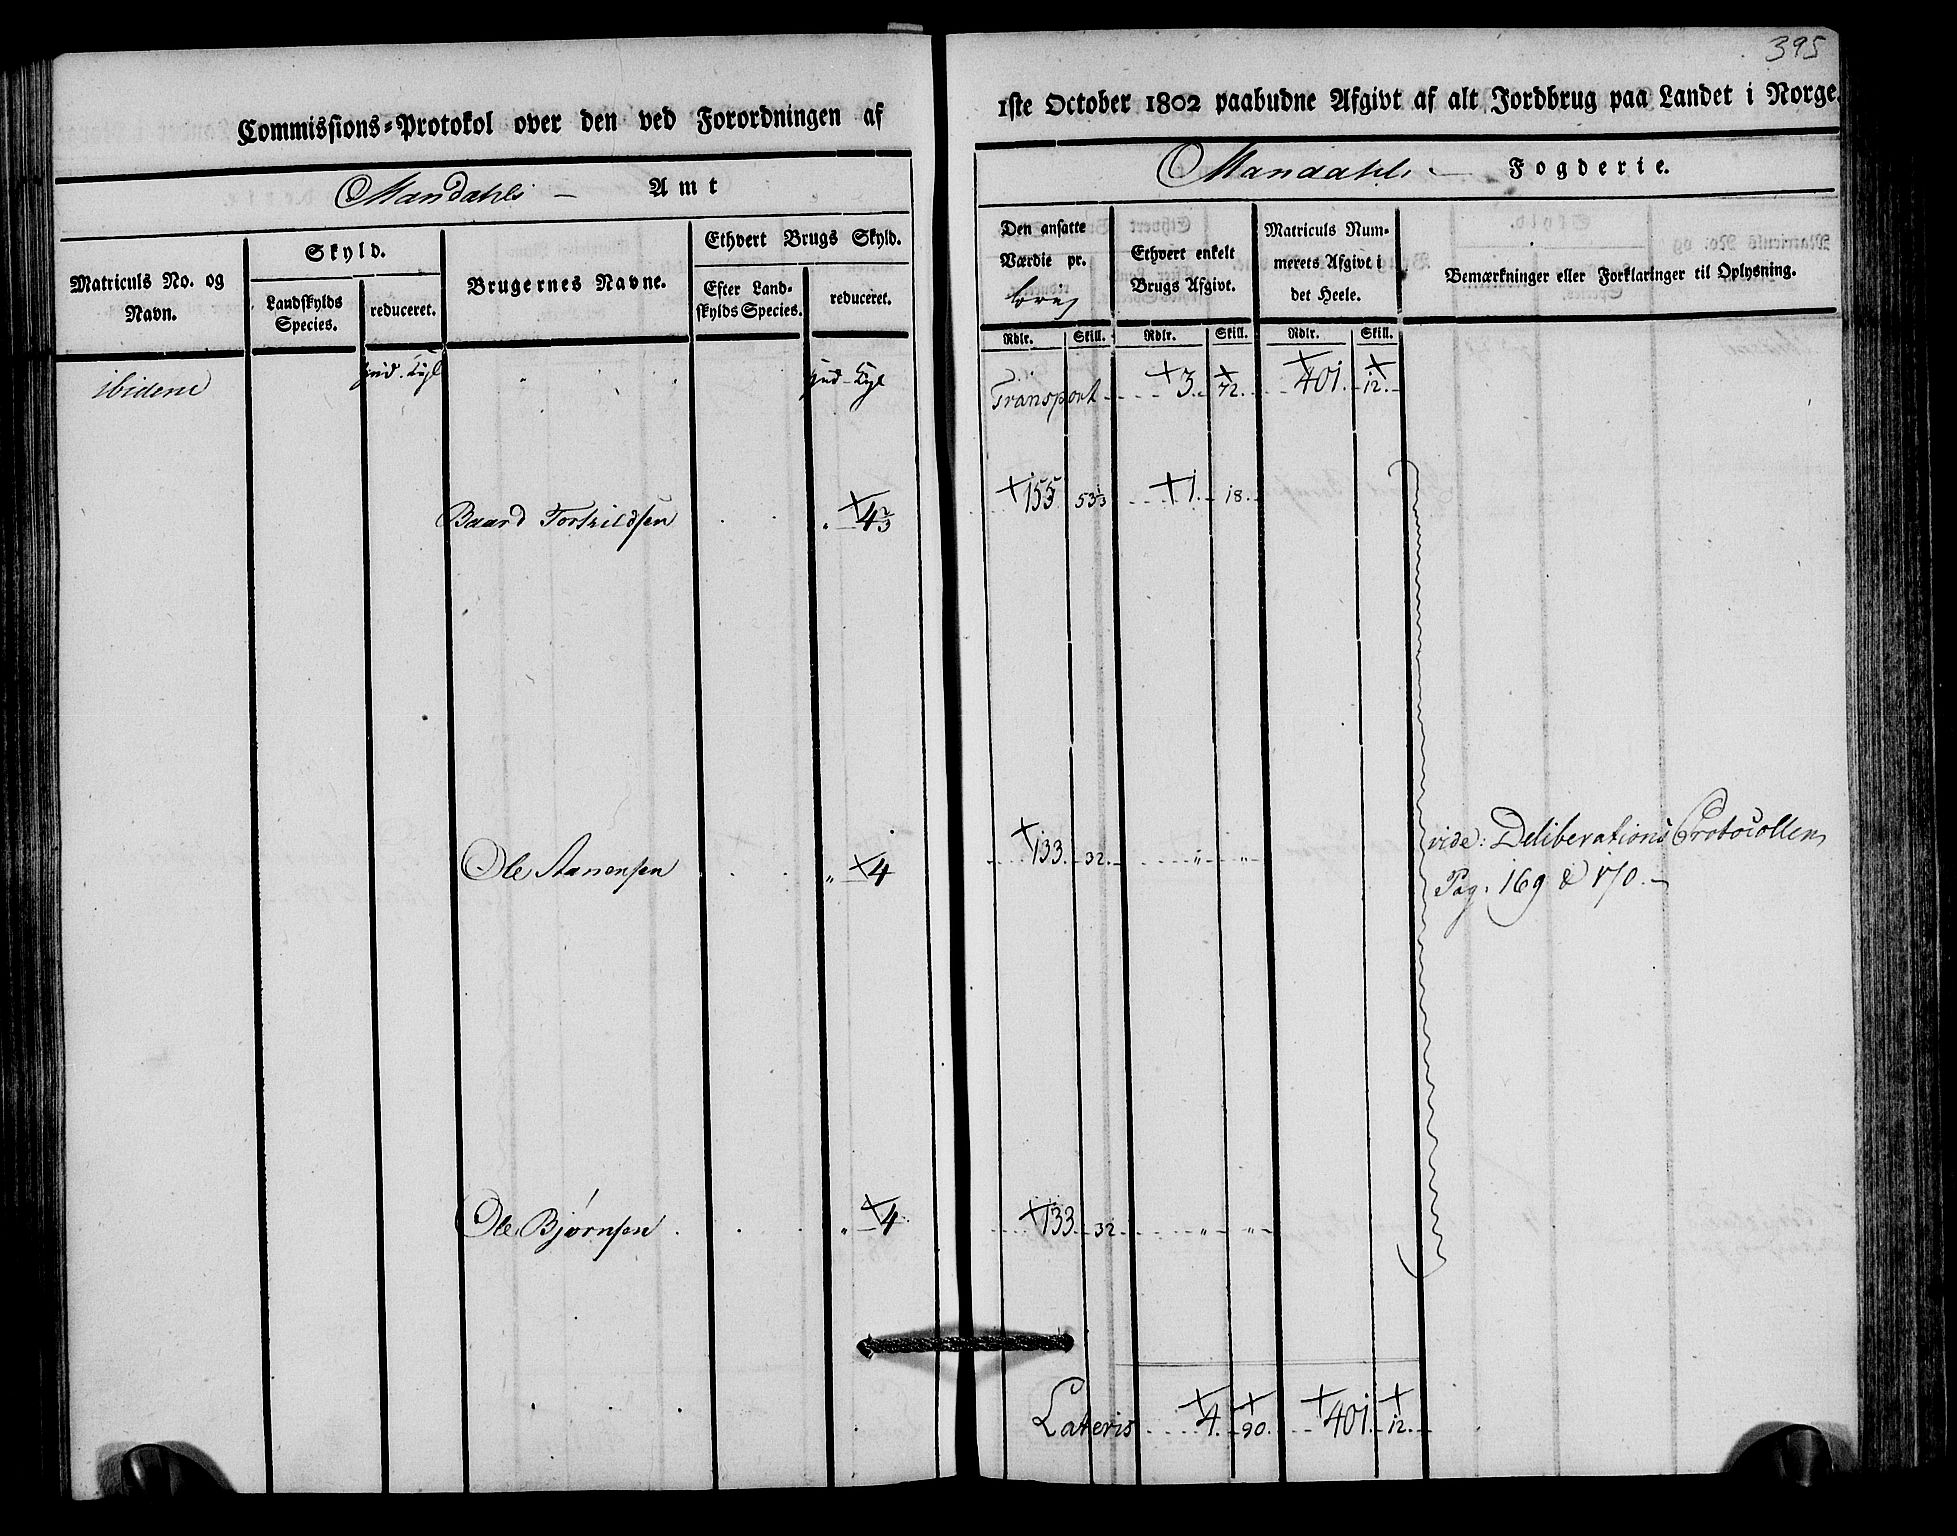 395
Commissions-Protokol over den ved Forordningen af
1ste October 1802 paabudne Afgivt af alt Jordbrug paa Landet i Norge.
Mandahls Amt
Mandahls Fogderie.
Matriculs No. og Navn.
Skyld.
Landskylds Species.
reduceret.
Brugernes Navne.
Ethvert Brugs Skyld.
Efter Landskylds Species.
reduceret.
Den ansatte Værdie pr.
Ethvert enkelt Brugs Afgivt.
Matriculs Nummerets Afgivt i det Heele.
Bemærkninger eller Forklaringer til Oplysning.
Rdlr. Skill. Rdlr. Skill. Rdlr. Skill.
ibidem
Transport 3. 72. 401. 12.
Baard Torkildsen " 4 2/3 155 53 1/3 1. 18.
Ole Aanensen " 4 133. 32. " "
vide: Deliberations Protocollen
Pag. 169 & 170.
Ole Bjørnsen " 4 133. 32. " "
Lateris 4. 90. 401. 12.